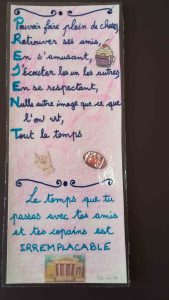 Pouvoir faire plein de choses,
Retrouver ses amis,
En s'amusant,
S'écouter les uns les autres
En se respectant,
Nulle autre image que ce que
l'on vit,
Tout le temps
Le temps que tu
passes avec tes amis
et tes copains est
IRREMPLACABLE